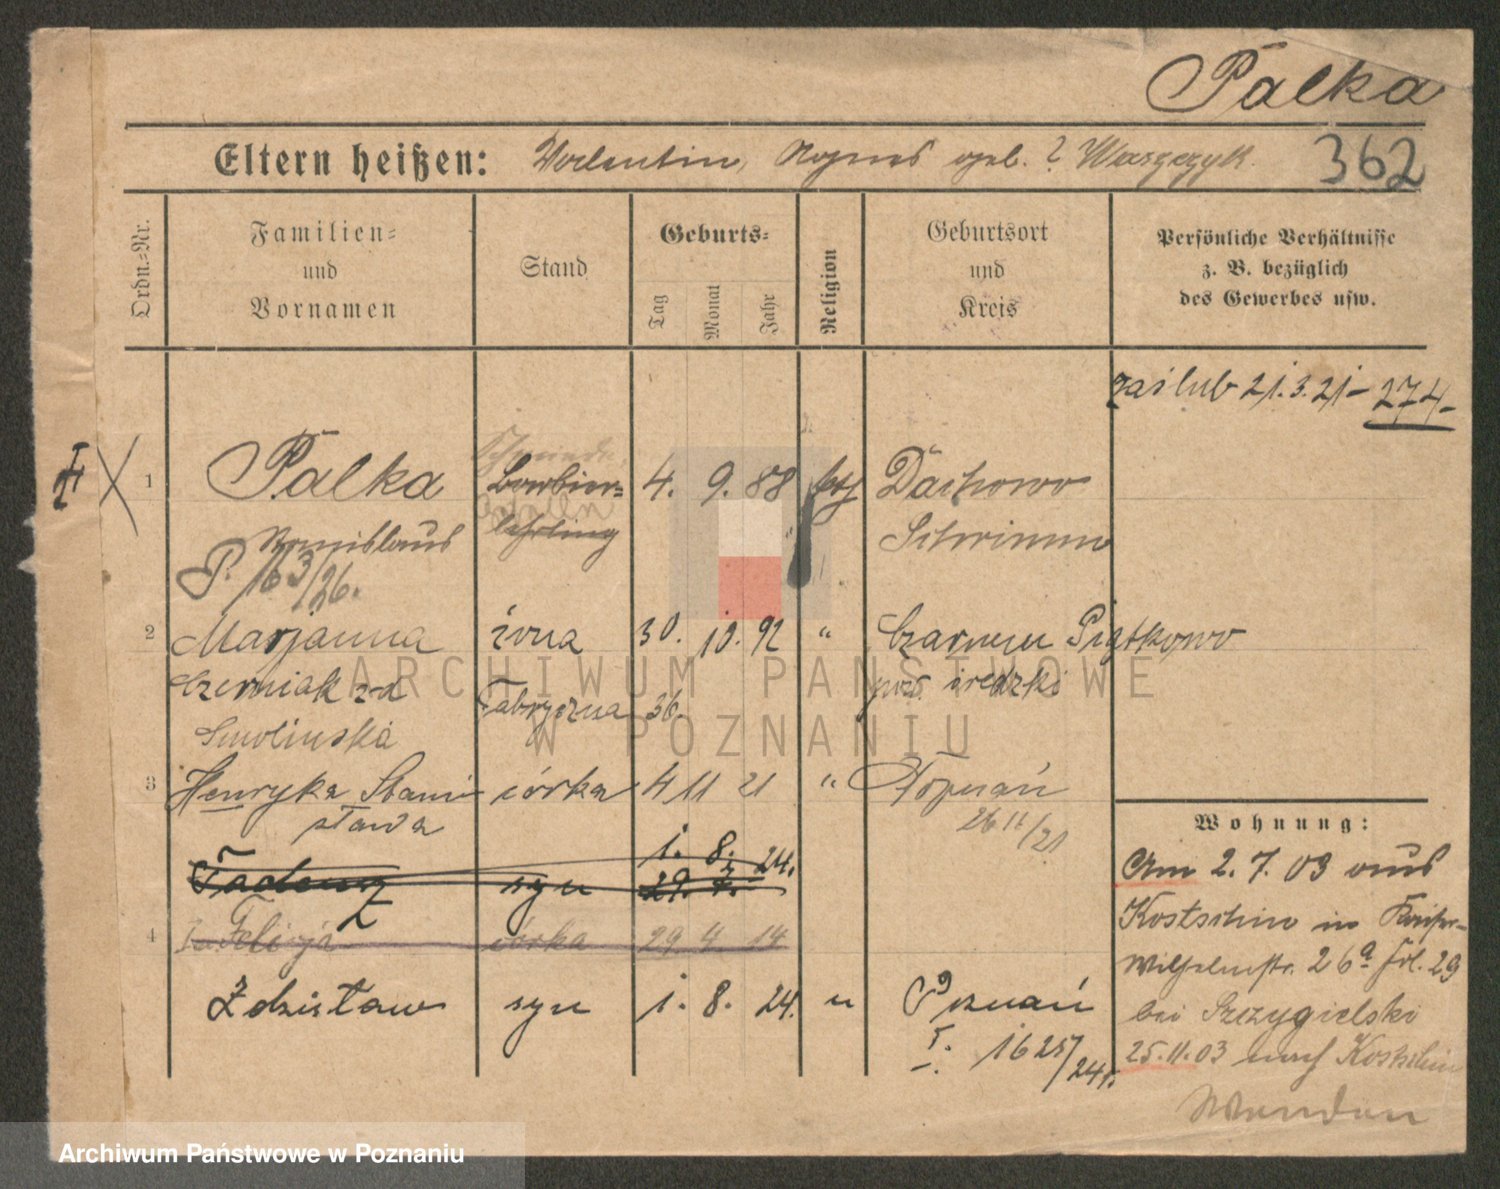 Pałka
Eltern heißen: Valentin, Agnes geb. ? Waszczyk 362
Ordn.-Nr.
Familien-
und
Vornamen
Stand
Geburts-
Tag Monat Jahr
Religion
Geburtsort
und
Kreis
Persönliche Verhältnisse
z. B. bezüglich
des Gewerbes usw.
zaślub 21.3.21 - 274 -
1 Pałka Barbier- 4. 9. 88 kth Dachowo
lehrling Schrimm
Bronislaus
P. 163/26.
2 Marjanna żona 30. 10. 92 " Czarnem Piątkowo
Czerniak z d Fabryczna 36. pow. średzki
Smolinska
3 Henryka Stani córka 4 11 21 " Poznań
sława 26 11/21
1. 8. 24.
Tadeusz syn 29. 7.
4 Felicja córka 29 4 14
Zdzisław syn 1. 8. 24. " Poznań
I. 1625/24r.
Wohnung:
Am 2. 7. 03 aus
Kostschin in Kaiser-
Wilhelmstr. 26a Frl. 29
bei Szczygielski
25.11.03 nach Kostschin
Wenden
ARCHIWUM PAŃSTWOWE
W POZNANIU
Archiwum Państwowe w Poznaniu